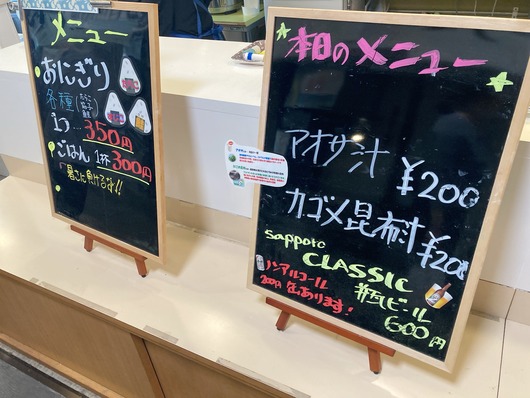 メニュー
おにぎり
各種
1コ…350円
ごはん 1杯 300円
「暑さに負けるな!!
本日のメニュー
アオサ汁 ¥200
カゴメ昆布 ¥200
Sapporo
CLASSIC
瓶ビール
600円
ノンアルコール
缶あります!